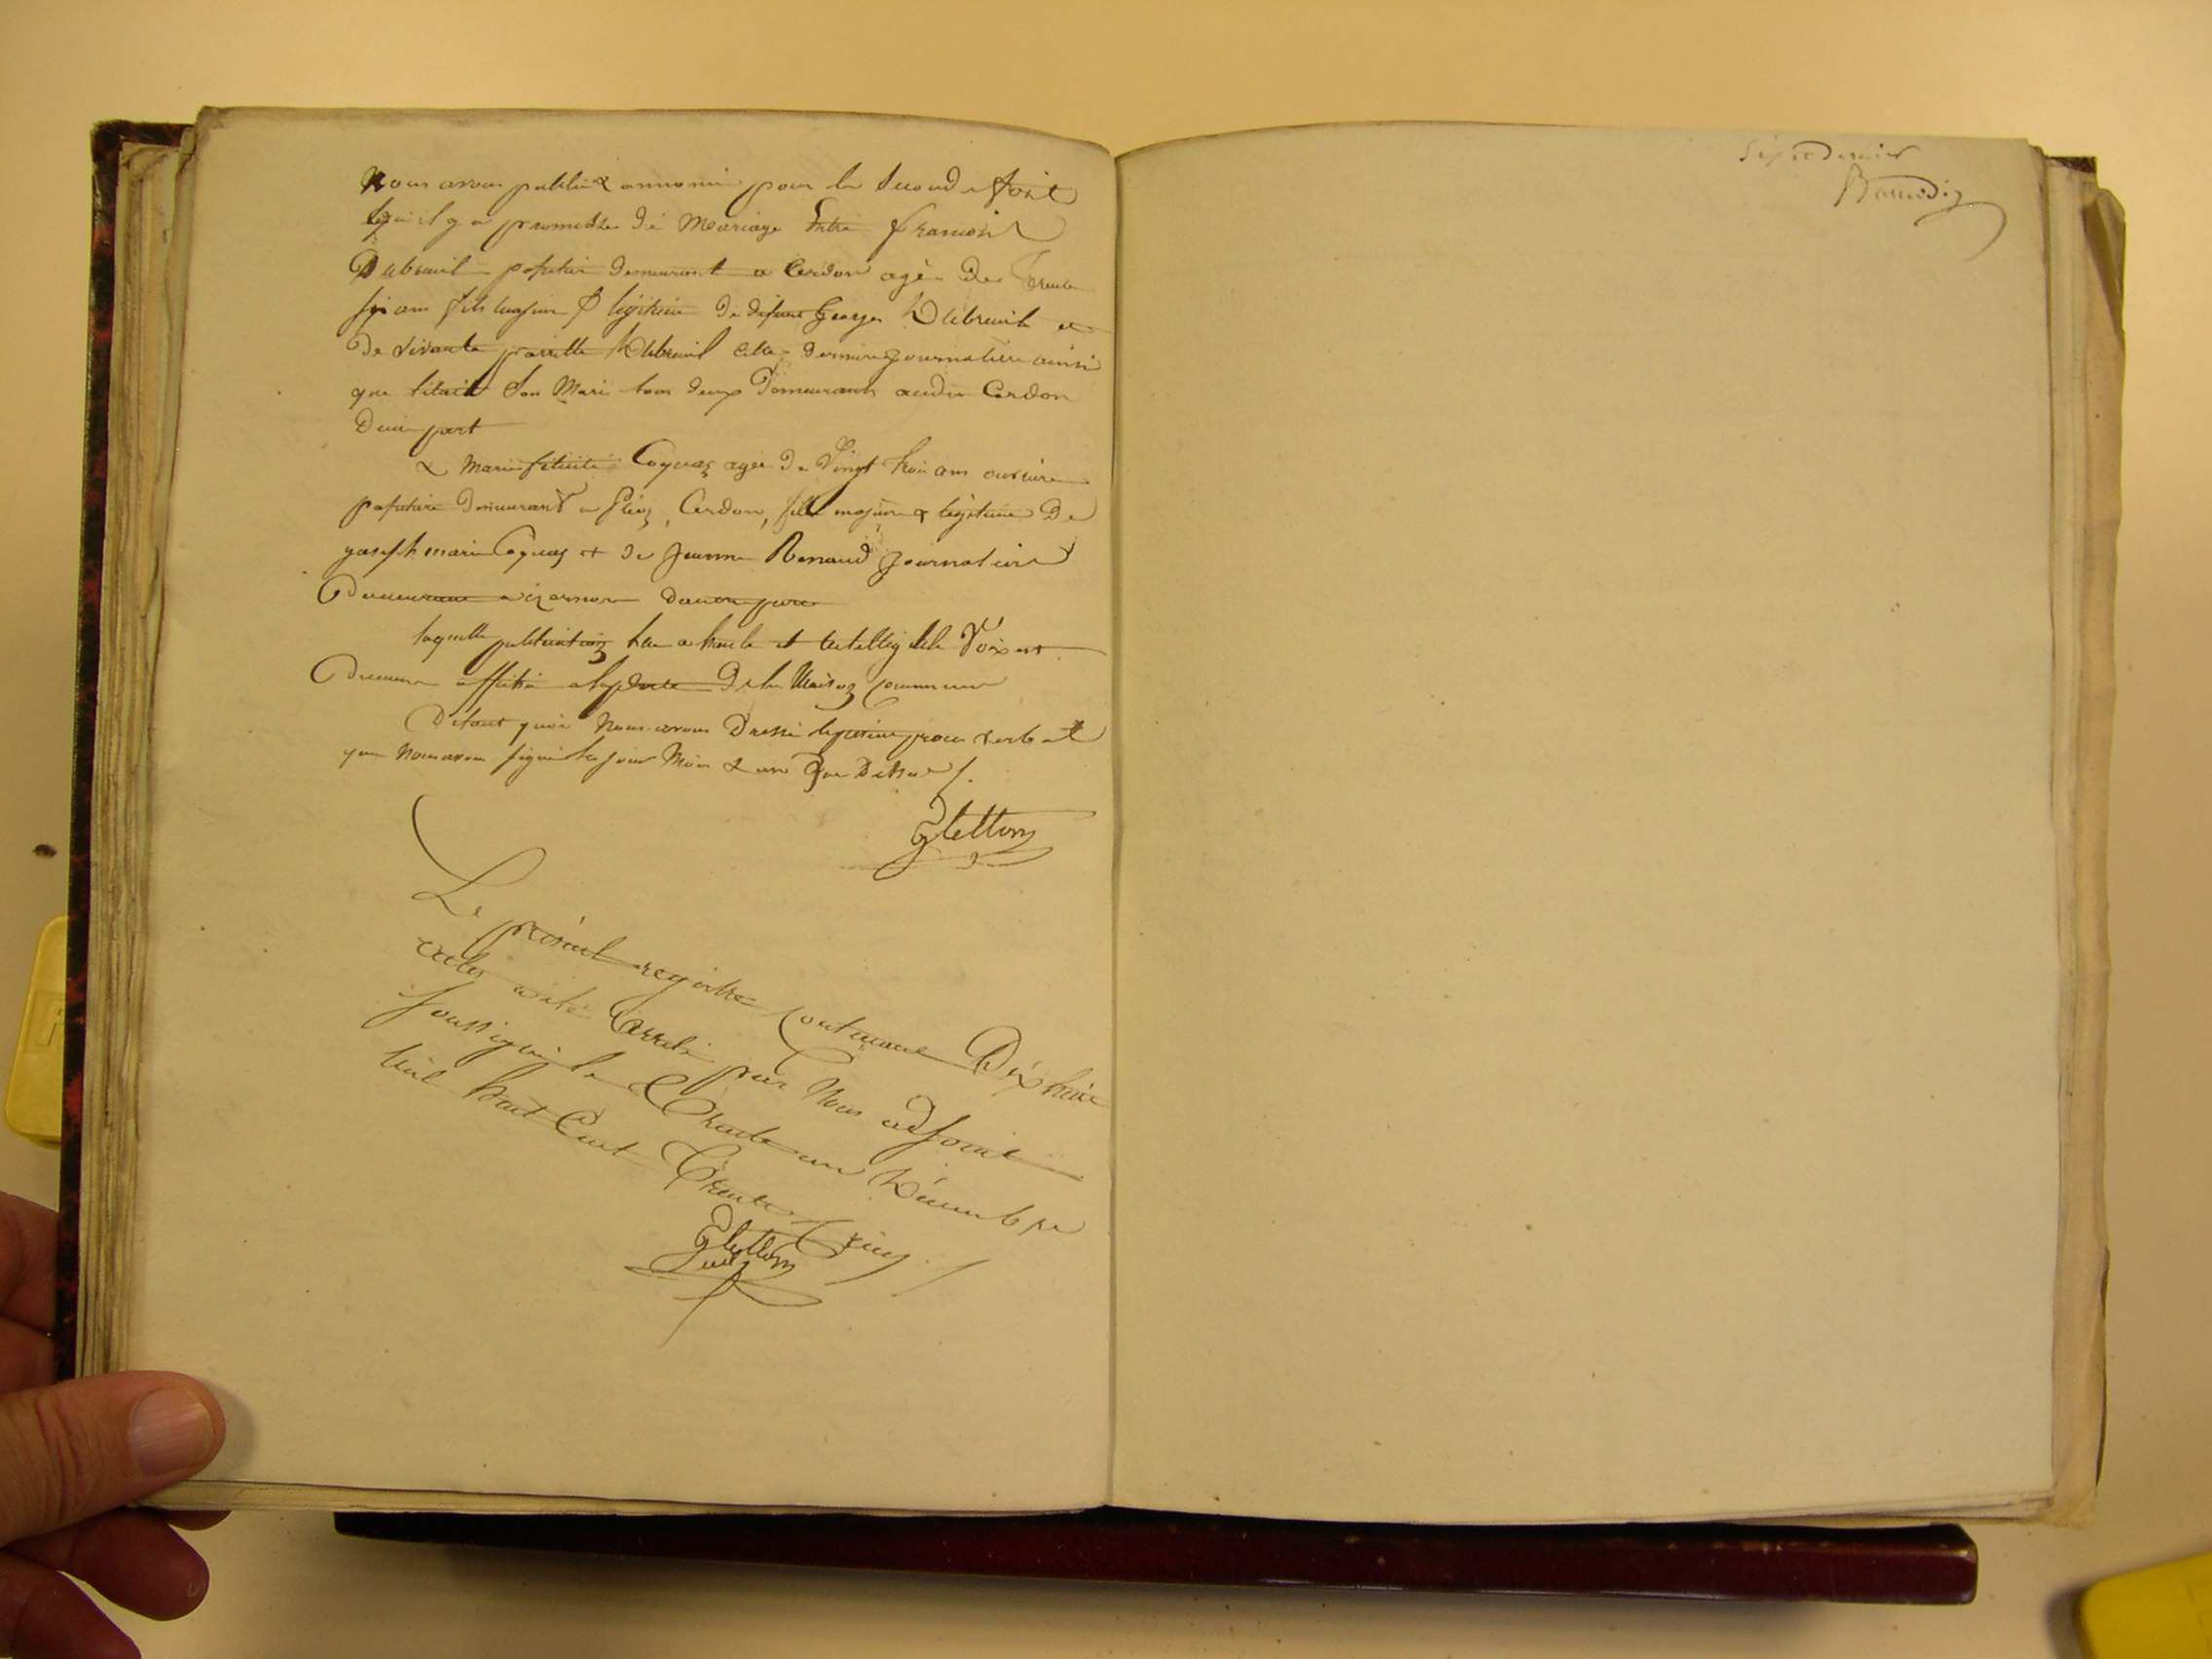 Nous avons publié & annoncé pour la seconde foit
qu'il y a promesse de Mariage Entre francois
Dubreuil papetier demeurant a Cerdon agé De Trente
six ans fils majeur & légitime De défunt George Dubreuil et
De vivante Dubreuil cette dernière Journalière ainsi
que l'étoit Son Mari tous deux Demeurants audit Cerdon
D'une part
& Marie félicité Coquaz agée De Vingt trois ans ouvrière
papetière Demeurant a Cerdon, fille majeure & légitime De
joseph marie Coquaz et de Jeanne Renaud Journaliers
Demeurant a izernore D'autre part
laquelle publication lue a haute et intelligible Voix est
Demeurée affichée a la porte De la Maison Commune
De tout quoi Nous avons Dressé le présent procès verbal
que Nous avons signé les jour Mois & an que Dessus /.
Gletton
Le présent registre contenant Dix huit
actes a été arrêté par Nous adjoint
soussigné le Trente un Décembre
mil huit Cent Trente
Gletton
Six et Dernier